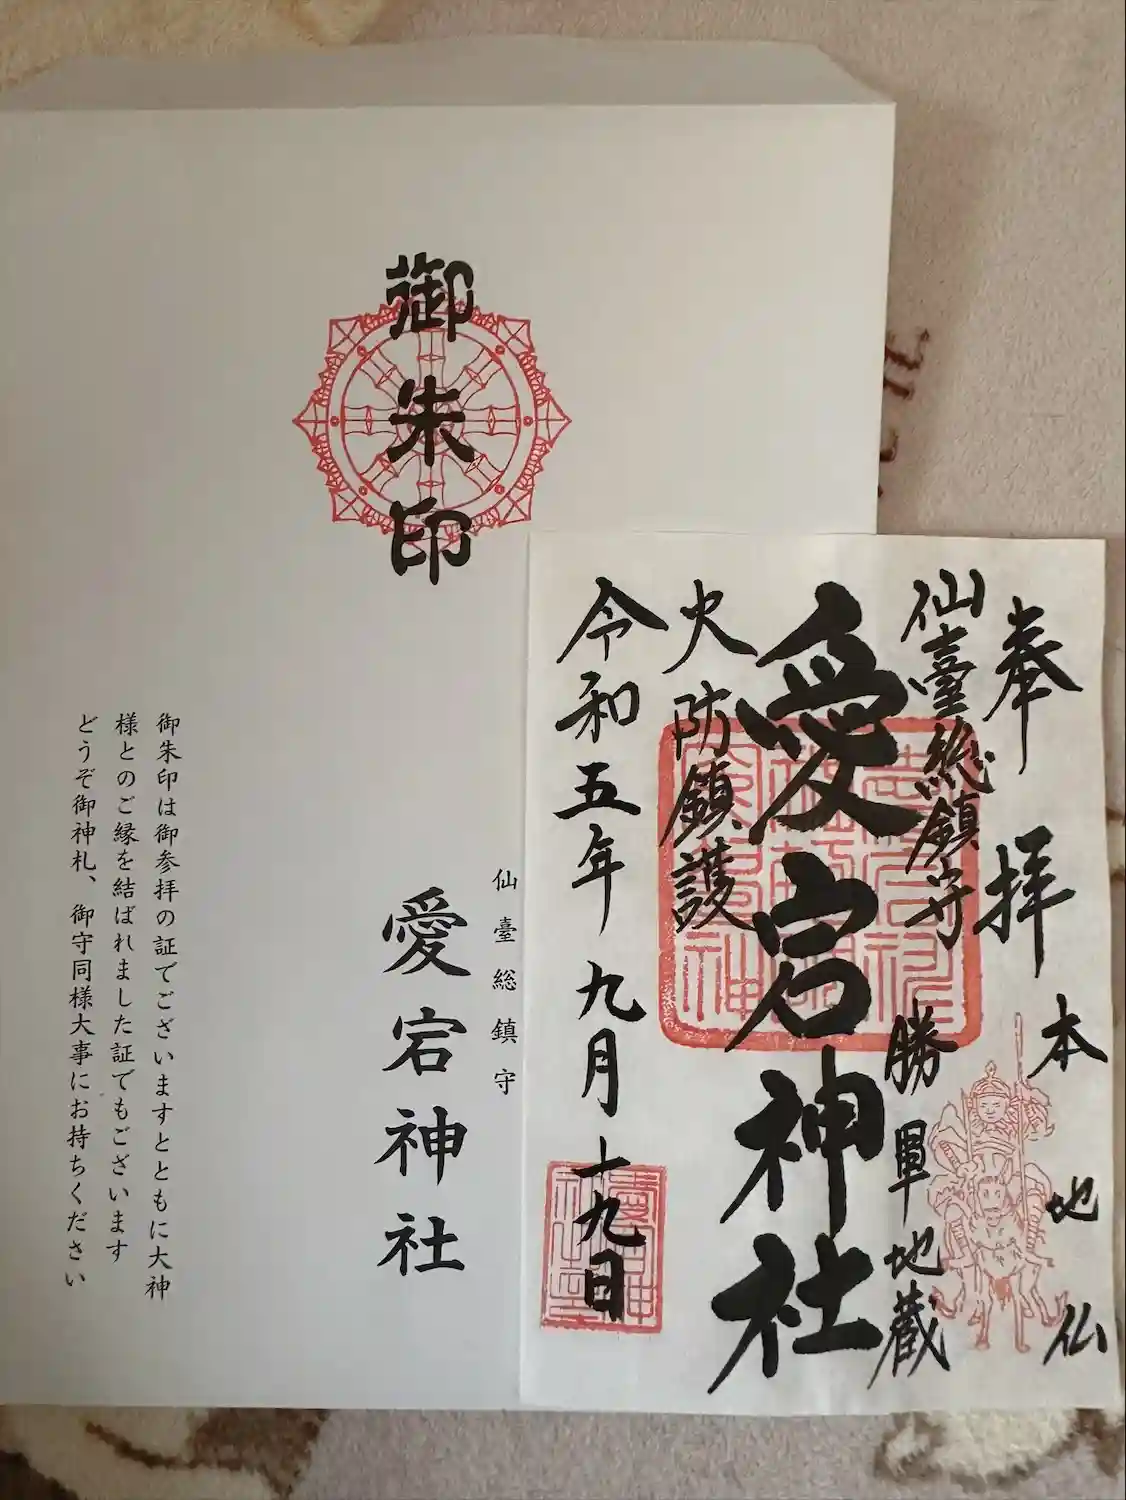 御朱印
仙臺総鎮守
愛宕神社
御朱印は御参拝の証でございますとともに大神
様とのご縁を結ばれました証でもございます
どうぞ御神札、御守同様大事にお持ちください
奉拝
本地仏
仙臺総鎮守
勝軍地蔵
愛宕神社
火防鎮護
令和五年九月十九日